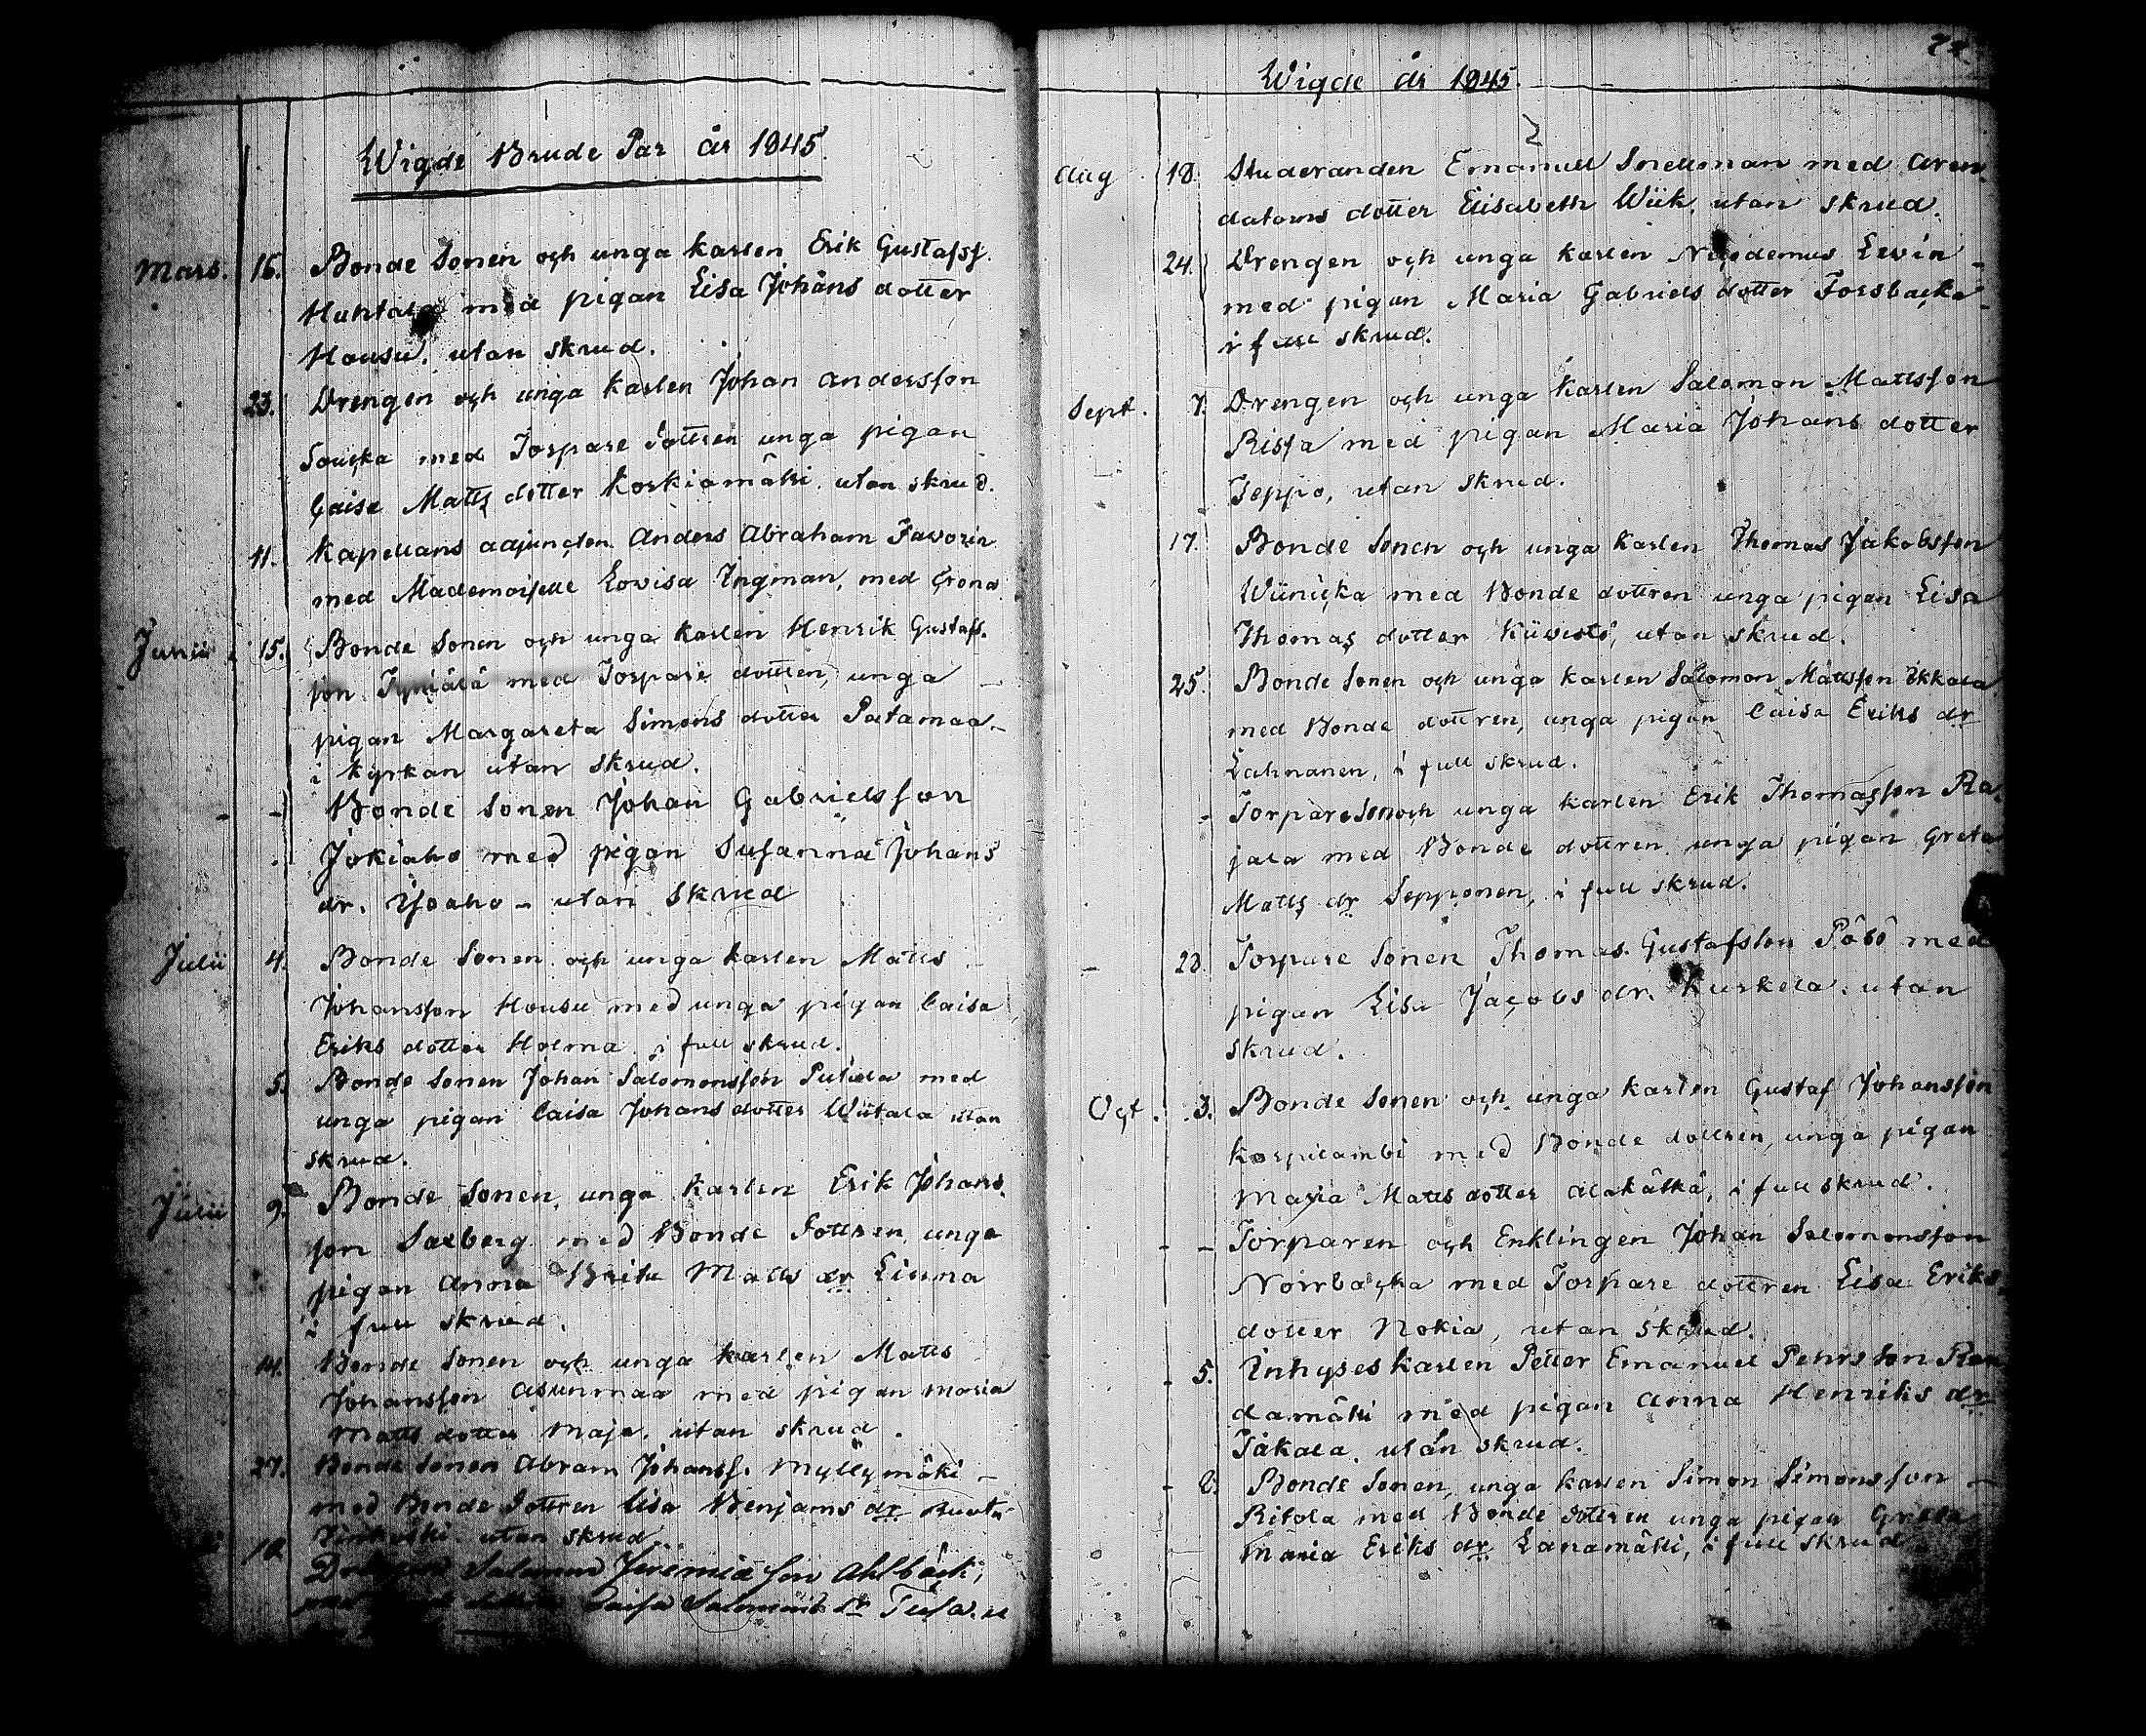 Wigde Brude Par år 1845.
Mars. 16. Bonde Sonen och unga karlen Erik Gustafss.
Huhtala med pigan Lisa Johans dotter
Housu. utan skrud.
23. Drengen och unga karlen Johan Andersson
Souka med Torpare dottren unga pigan
Caisa Matts dotter Koskiamäki. utan skrud.
11. Kapellans adjuncten Anders Abraham Favorin
med Mademoiselle Lovisa Ingman, med Crona
Junii 15. Bonde Sonen och unga karlen Henrik Gustafs-
son med Torpare dottren, unga
pigan Margareta Simons dotter Patamaa.
i kyrkan utan skrud.
- - Bonde Sonen Johan Gabrielsson
Jokiaho med pigan Susanna Johans
dr. Isoaho - utan skrud
Julii 4. Bonde Sonen och unga karlen Matts
Johansson Housu med unga pigan Caisa
Eriks dotter Holma i full skrud.
5. Bonde Sonen Johan Salomonsson med
unga pigan Caisa Johans dotter Wiitala utan
skrud.
Julii 9. Bonde Sonen, unga karlen Erik Johans-
son Saxberg med Bonde dottren, unga
pigan Anna Brita Matts dr Linna
i full skrud.
14. Bonde Sonen och unga karlen Matts
Johansson Asunmaa med pigan Maria
Matts dotter Maja. utan skrud.
27. Bonde Sonen Abram Johanss. Myllymäki -
med Bonde dottren Lisa Benjams dr
utan skrud
10. Salomon Jeremiasson Ahlbäck,
Caisa Salomons dr Tusa. u
72.
Wigde år 1845.
Aug. 18. Studeranden Emanuel Snellman med Aren-
datorns dotter Elisabeth Wiik, utan skrud.
24. Drengen och unga karlen Nicodemus Levin -
med pigan Maria Gabriels dotter Forsbacka -
i full skrud.
Sept. 7. Drengen och unga karlen Salomon Mattsson
Rissa med pigan Maria Johans dotter
Jeppo, utan skrud.
17. Bonde Sonen och unga karlen Thomas Jakobsson
Wiinicka med Bonde dottren unga pigan Lisa
Thomas dotter Kiwistö, utan skrud.
25. Bonde Sonen och unga karlen Salomon Mattsson Ikkala
med Bonde dottren, unga pigan Caisa Eriks dr
Lahnanen, i full skrud.
- Torpare Son och unga karlen Erik Thomasson Ra-
jala med Bonde dottren unga pigan Greta
Matts dr Sepponen, i full skrud.
- 28. Torpare Sonen Thomas Gustafsson Påso med
pigan Lisa Jacobs dr. Kuskela. utan
skrud.
Oct. 3. Bonde Sonen och unga karlen Gustaf Johansson
Korpilambi med Bonde dottren, unga pigan
Maria Matts dotter Alakälkä, i full skrud.
- - Torparen och Enklingen Johan Salomonsson
Norrbacka med Torpare dottren Lisa Eriks
dotter Nokia, utan skrud.
- 5. Inhyses karlen Petter Emanuel Pehrsson Ran
damäki med pigan Anna Henriks dr
Jäkala. utan skrud.
- 8. Bonde Sonen, unga karlen Simon Simonsson -
Ritola med Bonde dottren unga pigan Greta
Maria Eriks dr Lanamäki, i full skrud